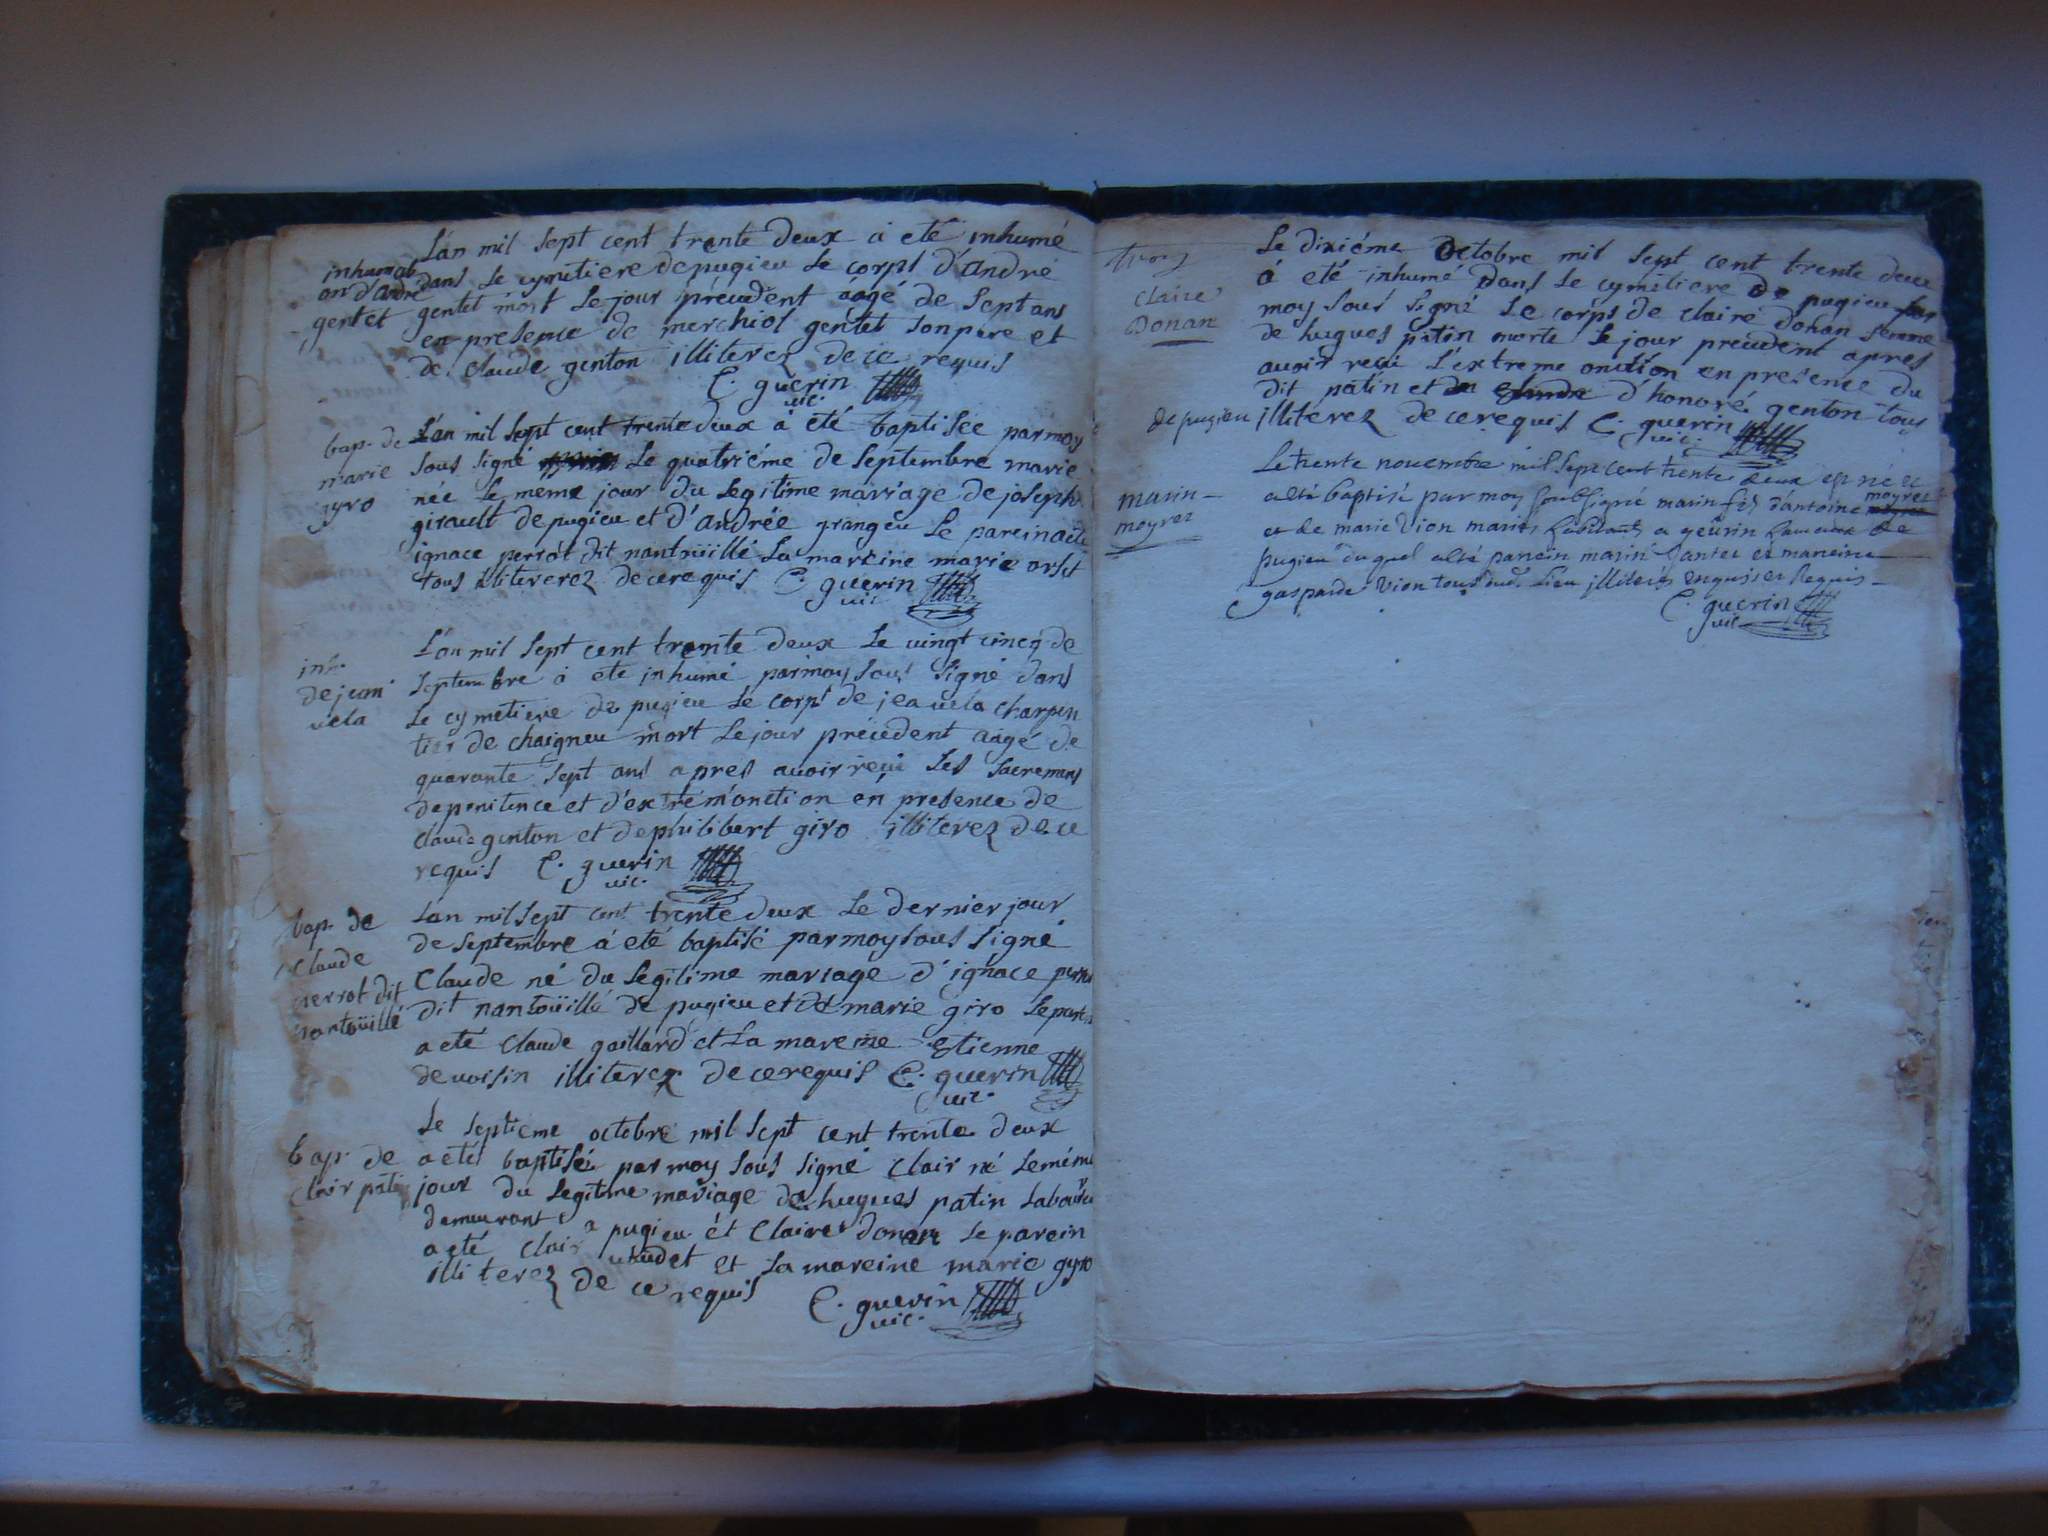 L'an mil sept cent trente deux a eté inhumé
inhumati
on d'andré
gentet
dans le cymetiere de pugieu le corps d'andré
gentet mort le jour précédent aagé de sept ans
en presence de merchiol gentet son pere et
de claude genton illiterez de ce requis
C. guerin
vic.
bap. de
marie
gyro
L'an mil sept cent trente deux a été baptisée par moy
sous signé le quatriéme de septembre marie
née le meme jour du legitime mariage de joseph
girault de pugieu et d'andrée grangeu le parein a été
ignace perrot dit nantoüillé la mareine marie orset
tous illiterez de ce requis C. guerin
vic.
inh.
de jean
vela
L'an mil sept cent trente deux le vingt cinq de
septembre a eté inhumé par moy sous signé dans
le cymetiere de pugieu le corps de jea vela charpen
tier de chaigneu mort le jour précédent aagé de
quarante sept ans apres avoir reçu les sacremens
de penitence et d'extrem'onction en presence de
claude genton et de philibert giro illiterez de ce
requis C. guerin
vic.
bap. de
Claude
perrot dit
nantoüillé
L'an mil sept cent trente deux le dernier jour
de septembre a eté baptisé par moy sous signé
Claude né du legitime mariage d'ignace perrot
dit nantoüillé de pugieu et de marie giro le parein
a eté Claude gaillard et la mareine Etienne
devoisin illiterez de ce requis C. guerin
vic.
bap. de
Clair patin
Le septieme octobre mil sept cent trente deux
a eté baptisé par moy sous signé Clair né le méme
jour du legitime mariage de hugues patin laboureur
demeurant a pugieu et Claire donan le parein
a eté Clair et la mareine marie gyro
illiterez de ce requis
C. guerin
vic.
Claire
Donan
de pugieu
Le dixiéme octobre mil sept cent trente deux
a été inhumé dans le cymetiere de pugieu par
moy sous signé le corps de claire donan femme
de hugues patin morte le jour précédent apres
avoir reçu l'extreme onction en presence du
dit patin et d'honoré genton tous
illiterez de ce requis C. guerin
vic.
marin
moyret
Le trente novembre mil sept cent trente deux est né et
a eté baptisé par moy soubsigné marin fils d'antoine moyret
et de marie Vion mariés habitants a hameau de
pugieu duquel a eté parrein marin et mareine
gasparde Vion tous dud. lieu illiterés enquis et Requis
C. guerin
vic.